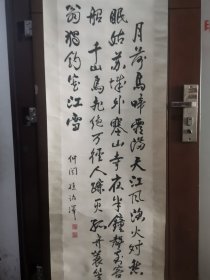 月落乌啼霜满天江风渔火对愁
眠姑苏城外寒山寺夜半钟声到客
船 千山鸟飞绝万径人踪灭孤舟蓑笠
翁独钓寒江雪